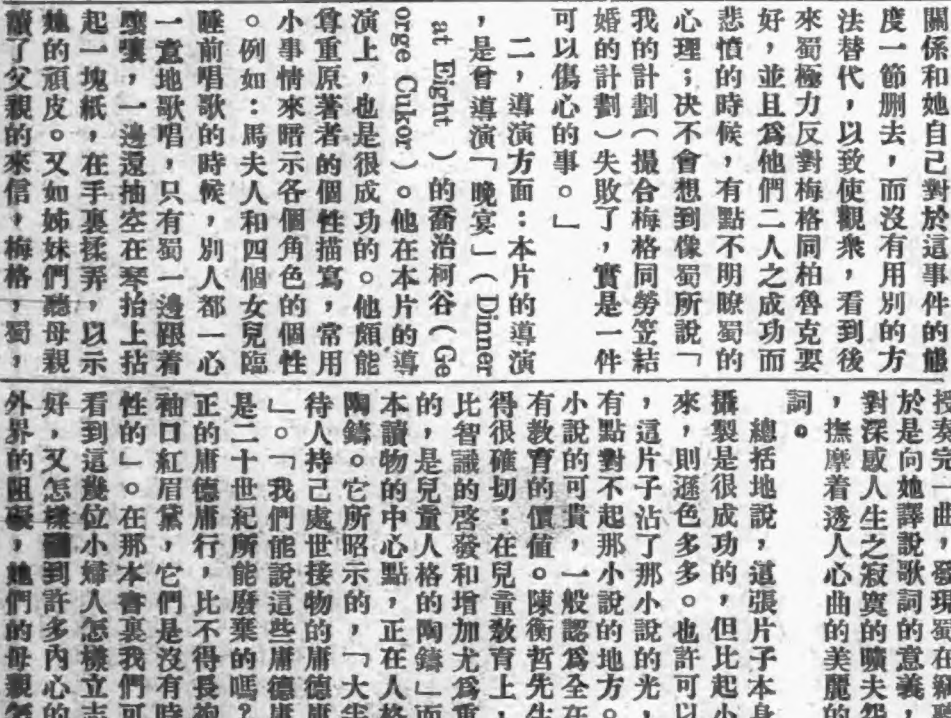 關係和她自己對於這事件的態
度一節删去，而沒有用別的方
法替代，以致使觀衆，看到後
來蜀極力反對梅格同柏魯克要
好，並且爲他們二人之成功而
悲憤的時候，有點不明瞭蜀的
心理；决不會想到像蜀所說「
我的計劃（撮合梅格同勞笠結
婚的計劃）失敗了，實是一件
可以傷心的事。」
二，導演方面：本片的導演
，是曾導演「晚宴」（Dinner
at Eight）的喬治柯谷（Ge
orge Cukor）。他在本片的導
演上，也是很成功的。他頗能
尊重原著者的個性描寫，常用
小事情來暗示各個角色的個性
。例如：馬夫人和四個女兒臨
睡前唱歌的時候，別人都一心
一意地歌唱，只有蜀一邊跟着
嚷嚷，一邊還抽空在琴抬上拈
起一塊紙，在手裏揉弄，以示
她的頑皮。又如姊妹們聽母親
讀了父親的來信，梅格，蜀，
奏完一曲，發現蜀在
於是向她譯說歌詞的意義，
對深感人生之寂寞的曠夫怨
，撫摩着透人心曲的美麗的
詞。
總括地說，這張片子本身
攝製是很成功的，但比起小
來，則遜色多多。也許可以
，這片子沾了那小說的光，
有點對不起那小說的地方。
小說的可貴，一般認爲全在
有教育的價值。陳衡哲先生
得很確切：在兒童教育上，
比智識的啓發和增加尤爲重
的，是兒童人格的陶鑄」而
本讀物的中心點，正在人格
陶鑄。它所昭示的，「大半
待人持己處世接物的庸德庸
」。「我們能說這些庸德庸
是二十世紀所能廢棄的嗎？
正的庸德庸行，比不得長袍
袖口紅眉黛，它們是沒有時
性的」。在那本書裏我們可
看到這幾位小婦人怎樣立志
好，又怎樣到許多內心的
外界的阻礙，她們的母親怎